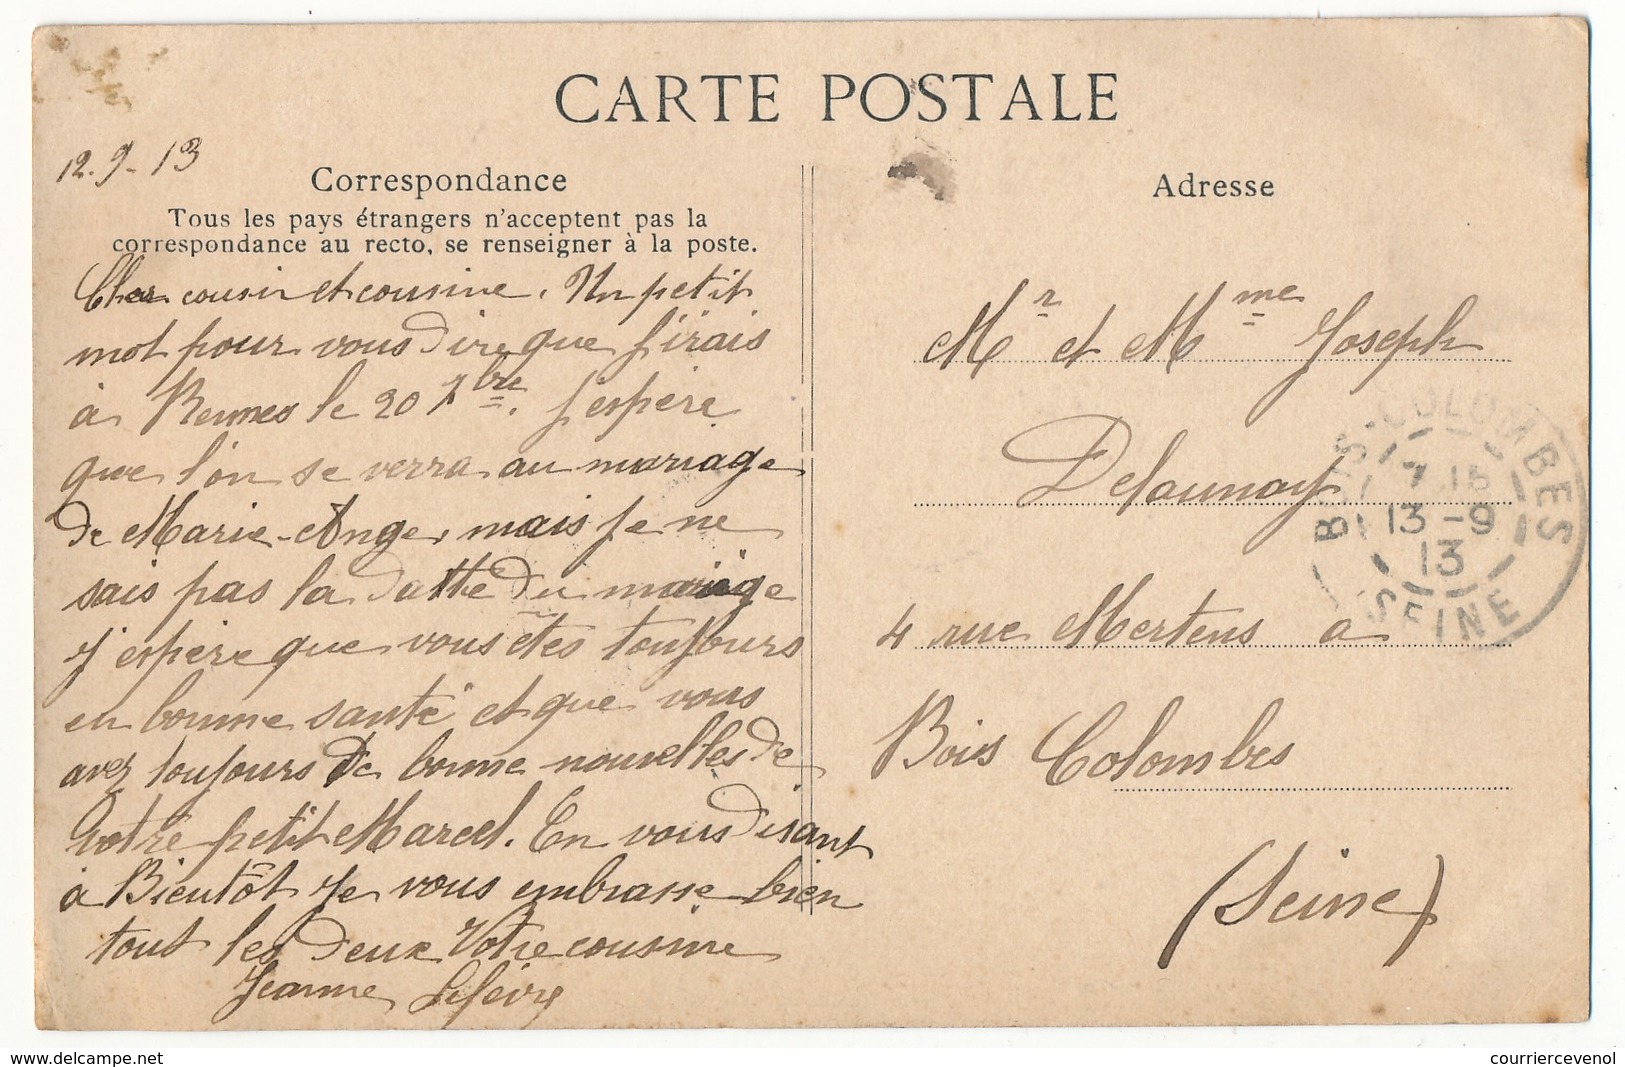 CARTE POSTALE
12.9-13
Correspondance
Tous les pays étrangers n'acceptent pas la
correspondance au recto, se renseigner à la poste.
Cher cousin et cousine. Un petit
mot pour vous dire que j'irais
à Rennes le 20 7bre. j'espère
que l'on se verra au mariage
de Marie-Ange, mais je ne
sais pas la datte du mariage
J'espère que vous êtes toujours
en bonne santé et que vous
avez toujours de bonne nouvelles de
votre petit Marcel. En vous disant
à Bientôt Je vous embrasse bien
tout les deux Votre cousine
Jeanne Lefèvre
Adresse
Mr et Mme Joseph
Delaunay
4 rue Mertens a
Bois Colombes
(Seine)
BOIS-COLOMBES
13-9
13
SEINE
www.delcampe.net
courriercevenol